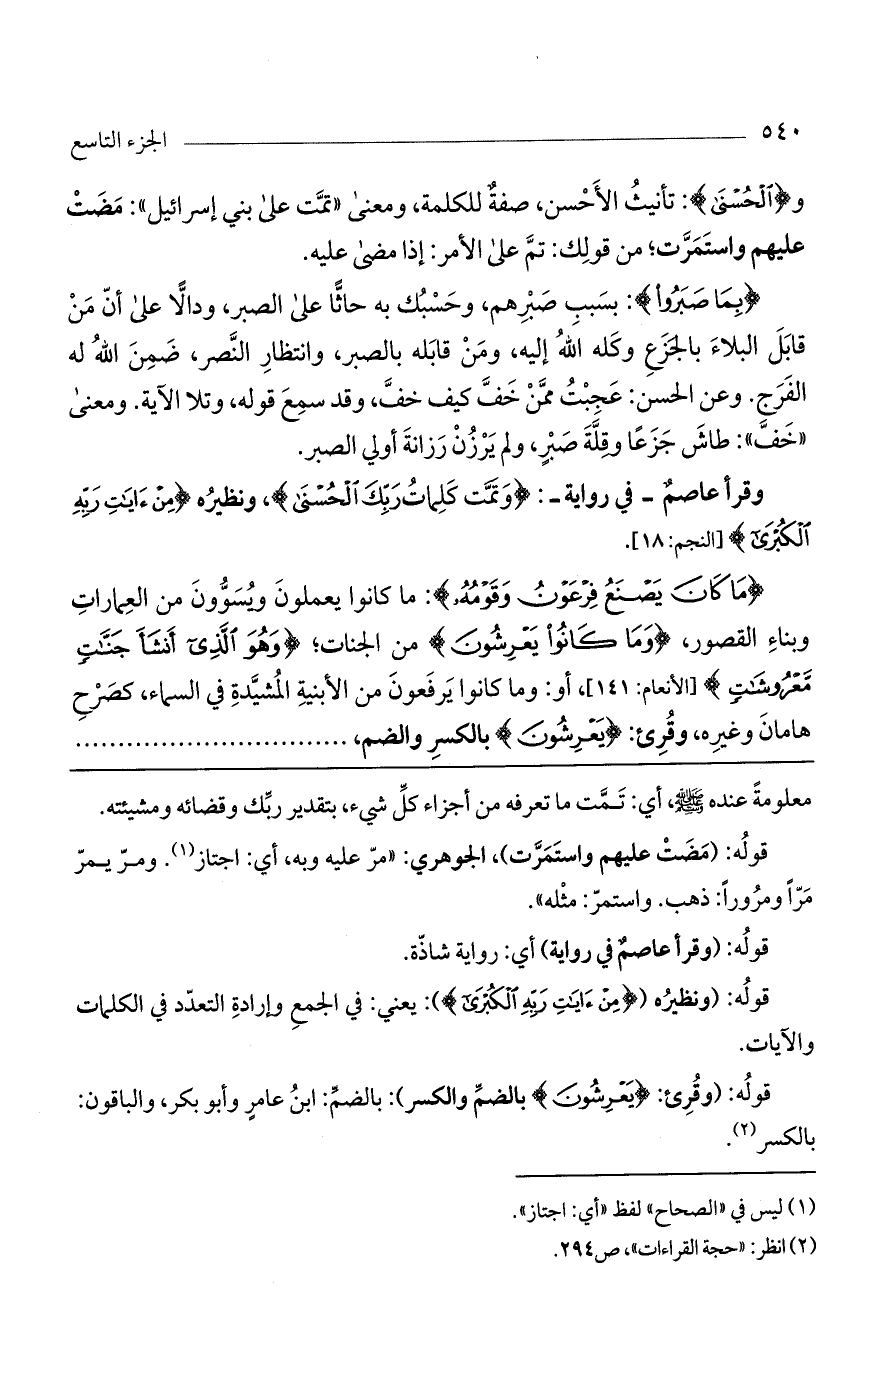 ٥٤٠ الجزء التاسع
و﴿ٱلْحُسْنَىٰ﴾: تأنيثُ الأَحْسن، صفةٌ للكلمة، ومعنىٰ «تمَّت علىٰ بني إسرائيل»: مَضَتْ
عليهم واستَمَرَّت؛ من قولِك: تمَّ علىٰ الأمر: إذا مضىٰ عليه.
﴿بِمَا صَبَرُوا۟﴾: بسَببِ صَبْرِهم، وحَسْبُك به حاثًّا علىٰ الصبر، ودالًّا علىٰ أنّ مَنْ
قابَلَ البلاءَ بالجَزَعِ وكَله اللهُ إليه، ومَنْ قابَله بالصبر، وانتظارِ النَّصر، ضَمِنَ اللهُ له
الفَرَج. وعن الحسن: عَجِبْتُ ممَّنْ خَفَّ كيف خفَّ، وقد سمِعَ قوله، وتلا الآية. ومعنىٰ
«خَفَّ»: طاشَ جَزَعًا وقِلَّةَ صَبْرٍ، ولم يَرْزُنْ رَزانةَ أولي الصبر.
وقرأ عاصمٌ - في رواية -: ﴿وَتَمَّت كَلِماتُ رَبِّكَ ٱلْحُسْنَىٰ﴾، ونظيرُه ﴿مِنْ ءَايَـٰتِ رَبِّهِ
ٱلْكُبْرَىٰٓ﴾ [النجم: ١٨].
﴿مَا كَانَ يَصْنَعُ فِرْعَوْنُ وَقَوْمُهُۥ﴾: ما كانوا يعملونَ ويُسَوُّونَ من العِماراتِ
وبناءِ القصور، ﴿وَمَا كَانُوا۟ يَعْرِشُونَ﴾ من الجنات؛ ﴿وَهُوَ ٱلَّذِىٓ أَنشَأَ جَنَّـٰتٍ
مَّعْرُوشَـٰتٍ﴾ [الأنعام: ١٤١]، أو: وما كانوا يَرفَعونَ من الأبنيةِ المُشيَّدةِ في السماء، كصَرْحِ
هامانَ وغيرِه، وقُرِئ: ﴿يَعْرِشُونَ﴾ بالكسرِ والضم، ................................
معلومةً عنده ﷺ، أي: تَـمَّت ما تعرفه من أجزاء كلِّ شيء، بتقدير ربِّك وقضائه ومشيئته.
قولُه: (مَضَتْ عليهم واستَمَرَّت)، الجوهري: «مرّ عليه وبه، أي: اجتاز(١). ومـرّ يـمرّ
مَرّاً ومرُوراً: ذهب. واستمرّ: مثْله».
قولُه: (وقرأ عاصمٌ في رواية) أي: رواية شاذّة.
قولُه: (ونظيرُه (﴿مِنْ ءَايَـٰتِ رَبِّهِ ٱلْكُبْرَىٰٓ﴾): يعني: في الجمعِ وإرادةِ التعدّد في الكلمات
والآيات.
قولُه: (وقُرِئ: ﴿يَعْرِشُونَ﴾ بالضمِّ والكسر): بالضمِّ: ابنُ عامرٍ وأبو بكر، والباقون:
بالكسر(٢).
(١) ليس في «الصحاح» لفظ «أي: اجتاز».
(٢) انظر: «حجة القراءات»، ص٢٩٤.